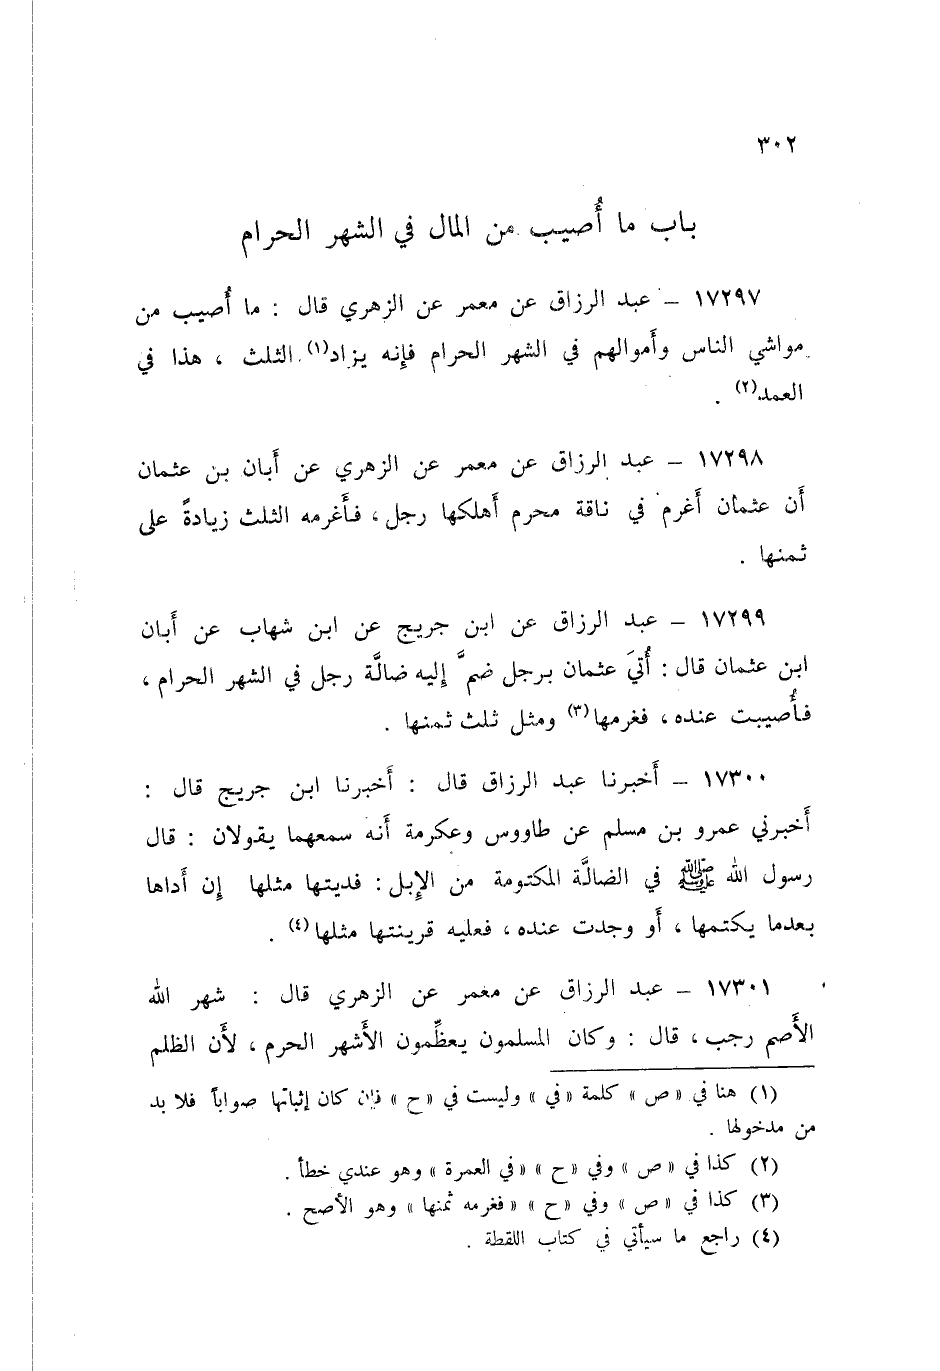 ٣٠٢
باب ما أُصيب من المال في الشهر الحرام
١٧٢٩٧ – عبد الرزاق عن معمر عن الزهري قال : ما أُصيب من
مواشي الناس وأموالهم في الشهر الحرام فإنه يزاد(١) الثلث ، هذا في
العمد(٢) .
١٧٢٩٨ – عبد الرزاق عن معمر عن الزهري عن أبان بن عثمان
أن عثمان أغرم في ناقة محرم أهلكها رجل ، فأغرمه الثلث زيادةً على
ثمنها .
١٧٢٩٩ – عبد الرزاق عن ابن جريج عن ابن شهاب عن أبان
ابن عثمان قال : أُتيَ عثمان برجل ضمَّ إليه ضالَّة رجل في الشهر الحرام ،
فأُصيبت عنده ، فغرمها(٣) ومثل ثلث ثمنها .
١٧٣٠٠ – أخبرنا عبد الرزاق قال : أخبرنا ابن جريج قال :
أخبرني عمرو بن مسلم عن طاووس وعكرمة أنه سمعهما يقولان : قال
رسول الله ﷺ في الضالَّة المكتومة من الإبل : فديتها مثلها إن أداها
بعدما يكتمها ، أو وجدت عنده ، فعليه قرينتها مثلها(٤) .
١٧٣٠١ – عبد الرزاق عن معمر عن الزهري قال : شهر الله
الأصم رجب ، قال : وكان المسلمون يعظِّمون الأشهر الحرم ، لأن الظلم
(١) هنا في « ص » كلمة « في » وليست في « ح » فإن كان إثباتها صواباً فلا بد
من مدخولها .
(٢) كذا في « ص » وفي « ح » « في العمرة » وهو عندي خطأ .
(٣) كذا في « ص » وفي « ح » « فغرمه ثمنها » وهو الأصح .
(٤) راجع ما سيأتي في كتاب اللقطة .